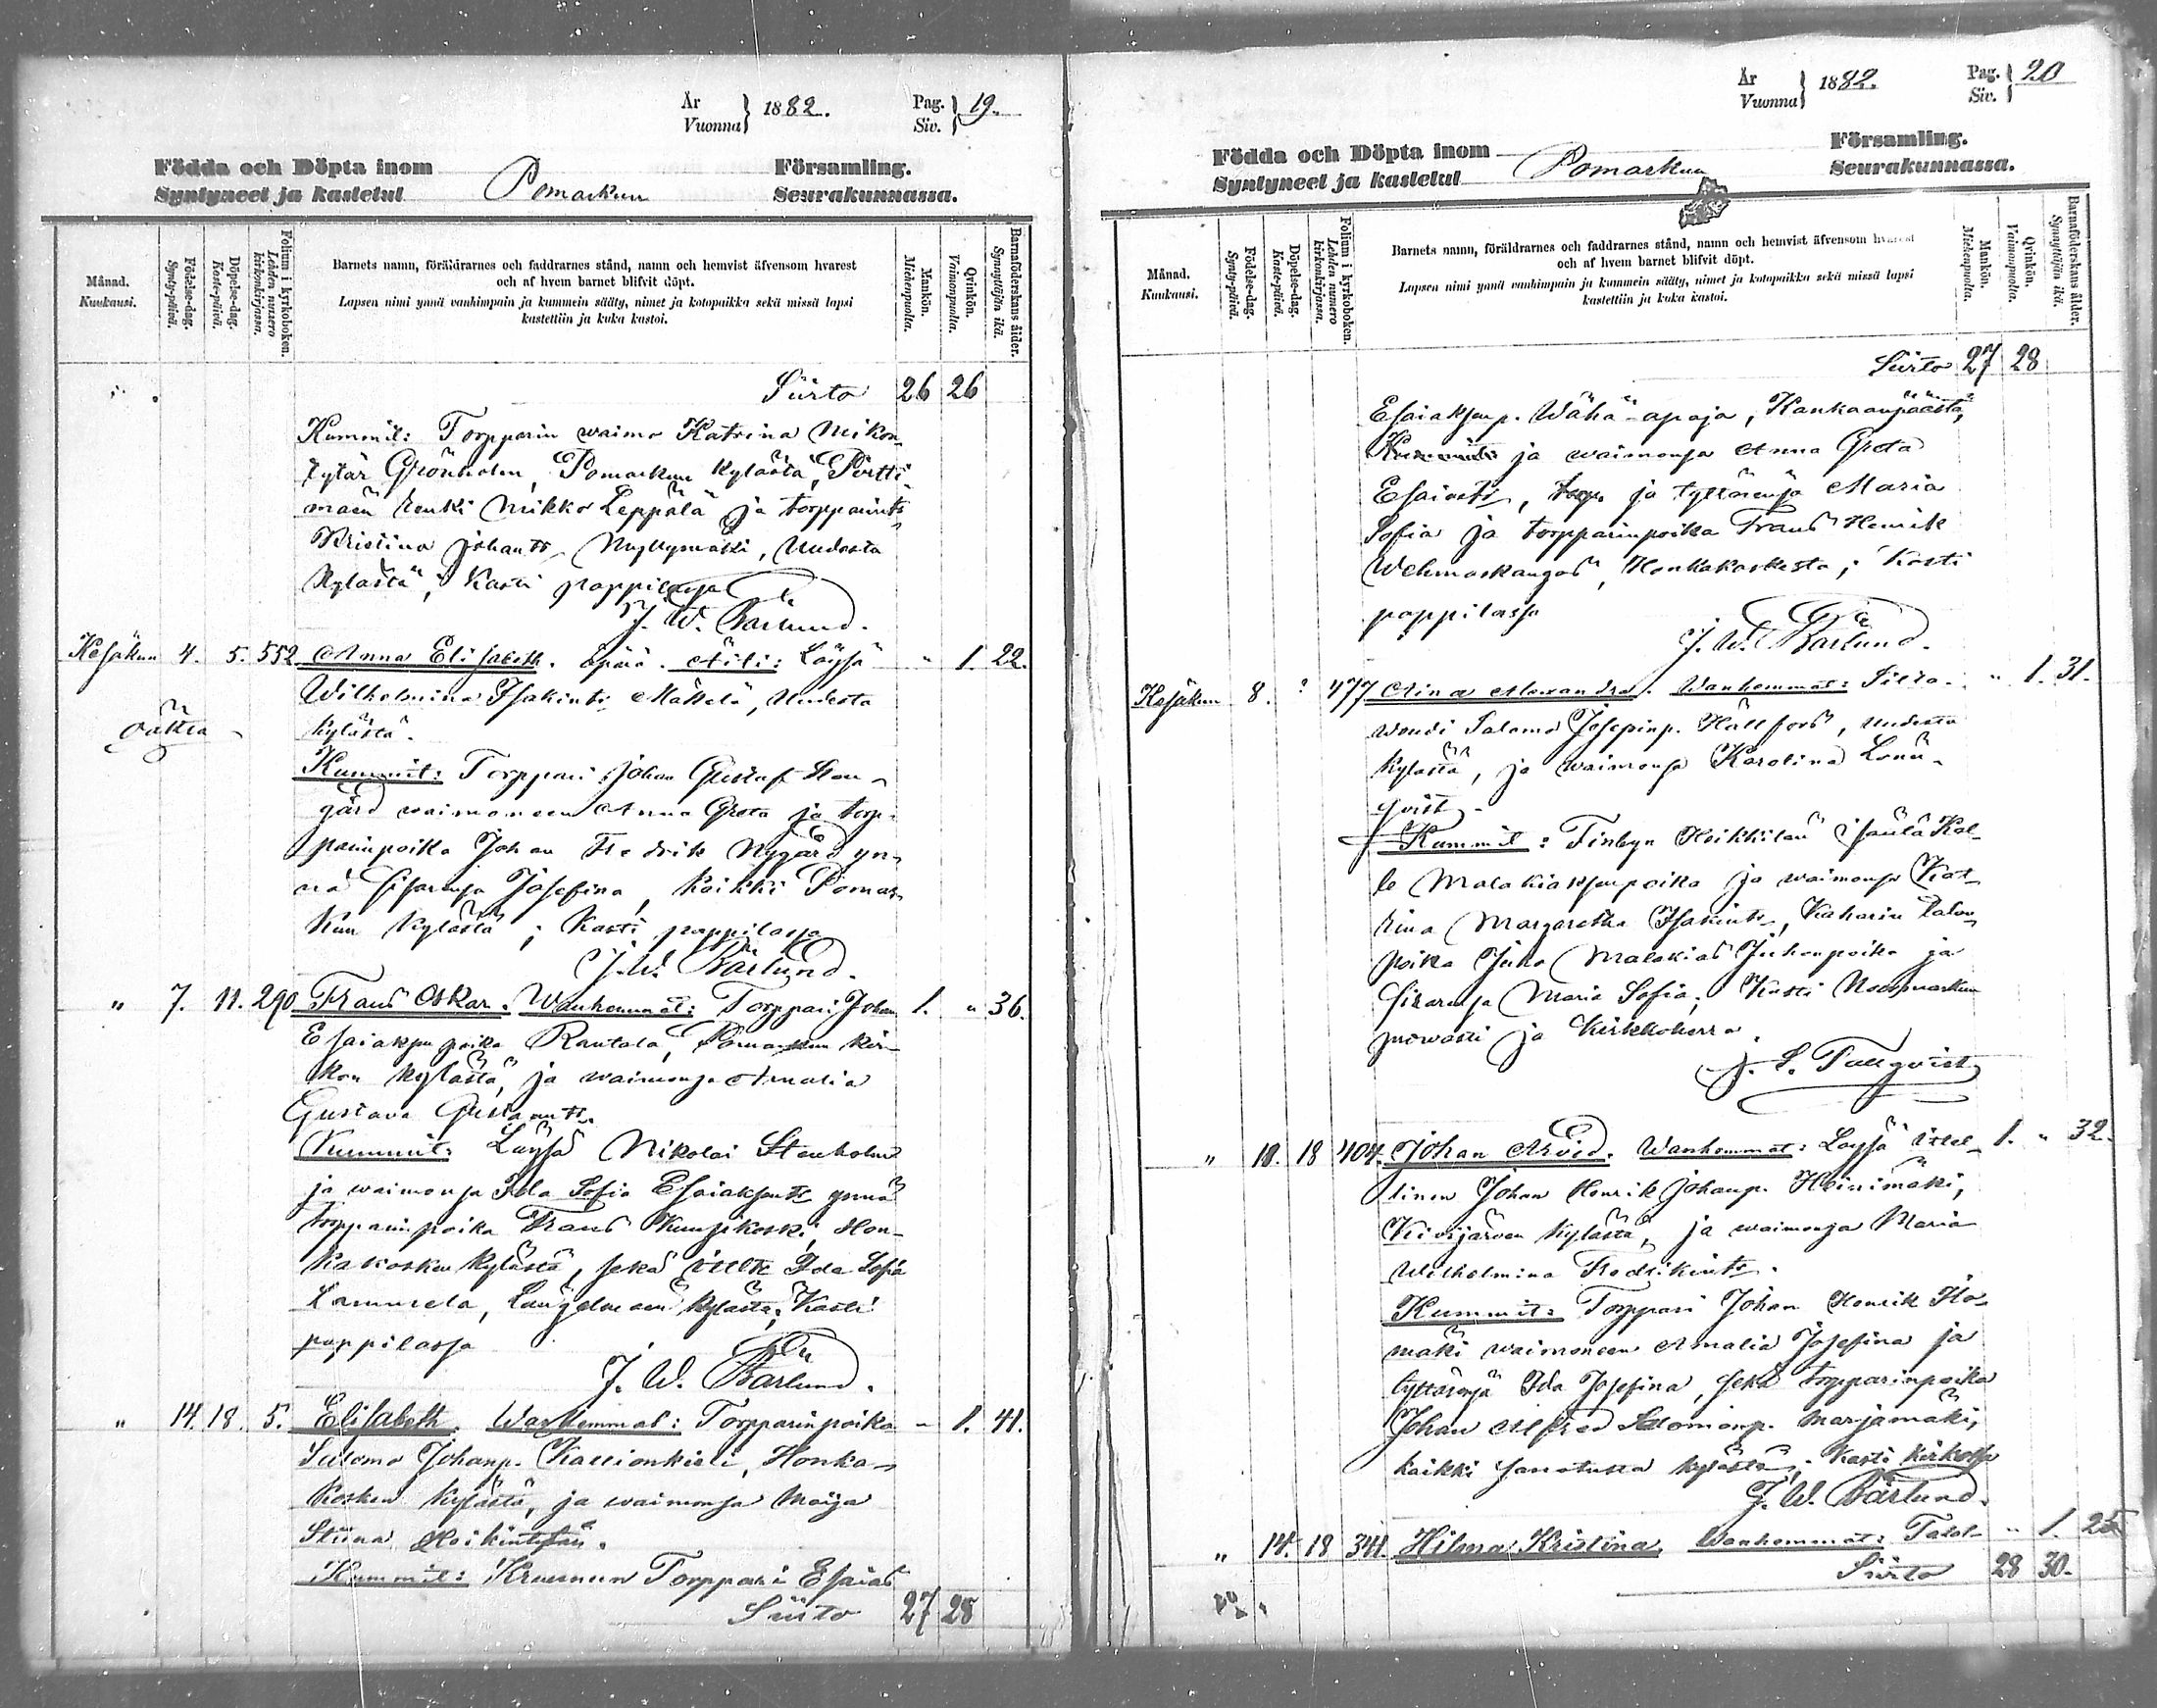 År
Vuonna } 1882. Pag.
Siv. } 19.
Födda och Döpta inom Församling.
Syntyneet ja kastetut Pomarkun Seurakunnassa.
Månad.
Kuukausi.
Födelse-dag.
Synty-päivä.
Döpelse-dag.
Kaste-päivä.
Folium i kyrkoboken.
Lehden numero
kirkonkirjassa.
Barnets namn, föräldrarnes och faddrarnes stånd, namn och hemvist äfvensom hvarest
och af hvem barnet blifvit döpt.
Lapsen nimi ynnä vanhimpain ja kummein sääty, nimet ja kotopaikka sekä missä lapsi
kastettiin ja kuka kastoi.
Mankön.
Miehenpuolta.
Qvinkön.
Vaimonpuolta.
Barnaföderskans ålder.
Synnyttäjän ikä.
Siirto 26 26
Kummit: Torpparin waimo Katrina Mikon
tytär Grönholm, Pomarkun kylästä, Pertti-
mäen renki Mikko Leppälä ja torpparints
Kristina Johants Myllymäki, Uudesta
kylästä; Kasti pappilassa
J. W. Bärlund.
Kesäkuu 4. 5. 552 Anna Elisabeth. äpärä. Äiti: Löysä " 1. 22.
Wilhelmina Isakints Mättälä, Uudesta
kylästä.
Kummit: Torppari Johan Gustaf Sten-
gård waimoneen Anna Greta ja torp-
parinpoika Johan Fredrik Nygård yn-
nä sisarensa Josefina, kaikki Pomar-
kun kylästä; Kasti pappilassa
J. W. Bärlund.
" 7. 11. 290 Frans Oskar. Wanhemmat: Torppari Johan 1. " 36.
Esaiaksen poika Rantala, Pomarkun kir-
kon kylästä, ja waimonsa Amalia
Gustava Gustavints.
Kummit: Löysä Nikolai Stenholm
ja waimonsa Ida Sofia Esaiaksents ynnä
torpparinpoika Frans Kuusikoski, Hon-
kakosken kylästä, sekä Ida Sofia
Lammela, kylästä; Kasti
pappilassa
J. W. Bärlund.
" 14. 18. 5. Elisabeth. Wanhemmat: Torpparinpoika " 1. 41.
Salomo Johanp. Kallionkieli, Honka-
kosken kylästä, ja waimonsa Maija
Stiina Heikintytär.
Kummit: Kruunun Torppari Esaias
Siirto 27 28
År
Vuonna } 1882. Pag.
Siv. } 20
Födda och Döpta inom Församling.
Syntyneet ja kastetut Pomarkun Seurakunnassa.
Månad.
Kuukausi.
Födelse-dag.
Synty-päivä.
Döpelse-dag.
Kaste-päivä.
Folium i kyrkoboken.
Lehden numero
kirkonkirjassa.
Barnets namn, föräldrarnes och faddrarnes stånd, namn och hemvist äfvensom hvarest
och af hvem barnet blifvit döpt.
Lapsen nimi ynnä vanhimpain ja kummein sääty, nimet ja kotopaikka sekä missä lapsi
kastettiin ja kuka kastoi.
Mankön.
Miehenpuolta.
Qvinkön.
Vaimonpuolta.
Barnaföderskans ålder.
Synnyttäjän ikä.
Siirto 27 28
Esaiaksenp. Wähä-apaja, Kankaanpäästä,
ja waimonsa Anna Greta
ja tyttärensä Maria
Sofia ja torpparinpoika Frans Henrik
Wehmaskangas, Honkakoskesta; Kasti
pappilassa
J. W. Bärlund.
Kesäkuu 8. ? 477 Aina Alexandra. Wanhemmat: Silta- " 1. 31.
woudi Salomo Josepinp. Hällfors, Uudesta
kylästä, ja waimonsa Karolina Lönn-
qvist.
Kummit: Finbyn Heikkilän isäntä Kal-
le Malakiaksenpoika ja waimonsa Kat-
rina Margaretha Isakints, Kaharin talon
poika Juho Malakias Juhonpoika ja
sisarensa Maria Sofia; Kasti Noormarkun
prowasti ja kirkkoherra
J. L. Tallqvist
" 18. 18 404. Johan Arvid. Wanhemmat: Löysä itsel- 1. " 32.
linen Johan Henrik Johanp. Heinimäki,
Kivijärven kylästä, ja waimonsa Maria
Wilhelmina Fredrikints.
Kummit: Torppari Johan Henrik Ho-
mäki waimoneen Amalia Josefina ja
tyttärensä Ida Josefina, sekä torpparinpoika
Johan Alfred Salomonp. Marjamäki,
kaikki kylästä; Kasti kirkossa
J. W. Bärlund.
" 14. 18 341. Hilma Kristina Wanhemmat: Talol- " 1. 25
Siirto 28 30.